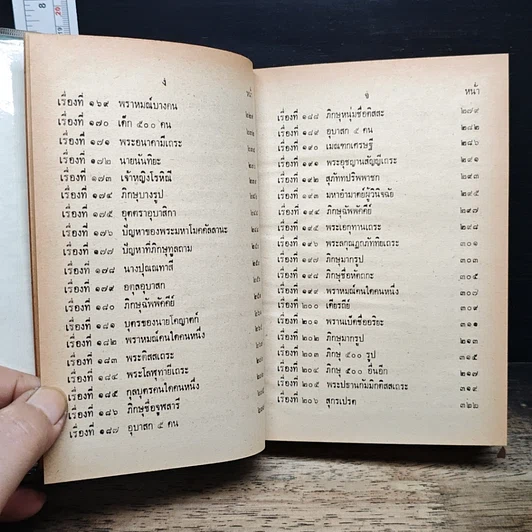 ง
หน้า
เรื่องที่ ๑๖๙ พราหมณ์บางคน
เรื่องที่ ๑๗๐ เด็ก ๕๐๐ คน
เรื่องที่ ๑๗๑ พระอนาคามีเถระ
เรื่องที่ ๑๗๒ นายนันทิยะ
เรื่องที่ ๑๗๓ เจ้าหญิงโรหิณี
เรื่องที่ ๑๗๔ ภิกษุบางรูป
เรื่องที่ ๑๗๕ อุตตราอุบาสิกา
เรื่องที่ ๑๗๖ ปัญหาของพระมหาโมคคัลลานะ
เรื่องที่ ๑๗๗ ปัญหาที่ภิกษุทูลถาม
เรื่องที่ ๑๗๘ นางปุณณทาสี
เรื่องที่ ๑๗๙ อตุลอุบาสก
เรื่องที่ ๑๘๐ ภิกษุฉัพพัคคีย์
เรื่องที่ ๑๘๑ บุตรของนายโคฆาตก์
เรื่องที่ ๑๘๒ พราหมณ์คนใดคนหนึ่ง
เรื่องที่ ๑๘๓ พระติสสเถระ
เรื่องที่ ๑๘๔ พระโลฬุทายีเถระ
เรื่องที่ ๑๘๕ กุลบุตรคนใดคนหนึ่ง
เรื่องที่ ๑๘๖ ภิกษุชื่อจูฬสารี
เรื่องที่ ๑๘๗ อุบาสก ๕ คน
หน้า
เรื่องที่ ๑๘๘ ภิกษุหนุ่มชื่อติสสะ ๒๗๙
เรื่องที่ ๑๘๙ อุบาสก ๕ คน ๒๘๒
เรื่องที่ ๑๙๐ เมณฑกเศรษฐี
เรื่องที่ ๑๙๑ พระอุชฌานสัญญีเถระ ๒๙๑
เรื่องที่ ๑๙๒ สุภัททปริพพาชก
เรื่องที่ ๑๙๓ มหาอำมาตย์ผู้วินิจฉัย ๒๙๕
เรื่องที่ ๑๙๔ ภิกษุฉัพพัคคีย์ ๒๙๗
เรื่องที่ ๑๙๕ พระเอกุทานเถระ
เรื่องที่ ๑๙๖ พระลกุณฏกภัททิยเถระ ๓๐๑
เรื่องที่ ๑๙๗ ภิกษุมากรูป
เรื่องที่ ๑๙๘ ภิกษุชื่อหัตถกะ ๓๐๕
เรื่องที่ ๑๙๙ พราหมณ์คนใดคนหนึ่ง ๓๐๗
เรื่องที่ ๒๐๐ เดียรถีย์ ๓๐๙
เรื่องที่ ๒๐๑ พรานเบ็ดชื่ออริยะ ๓๑๑
เรื่องที่ ๒๐๒ ภิกษุมากรูป
เรื่องที่ ๒๐๓ ภิกษุ ๕๐๐ รูป ๓๑๕
เรื่องที่ ๒๐๔ ภิกษุ ๕๐๐ อื่นอีก
เรื่องที่ ๒๐๕ พระปธานกัมมิกติสสเถระ ๓๑๙
เรื่องที่ ๒๐๖ สุกรเปรต ๓๒๒